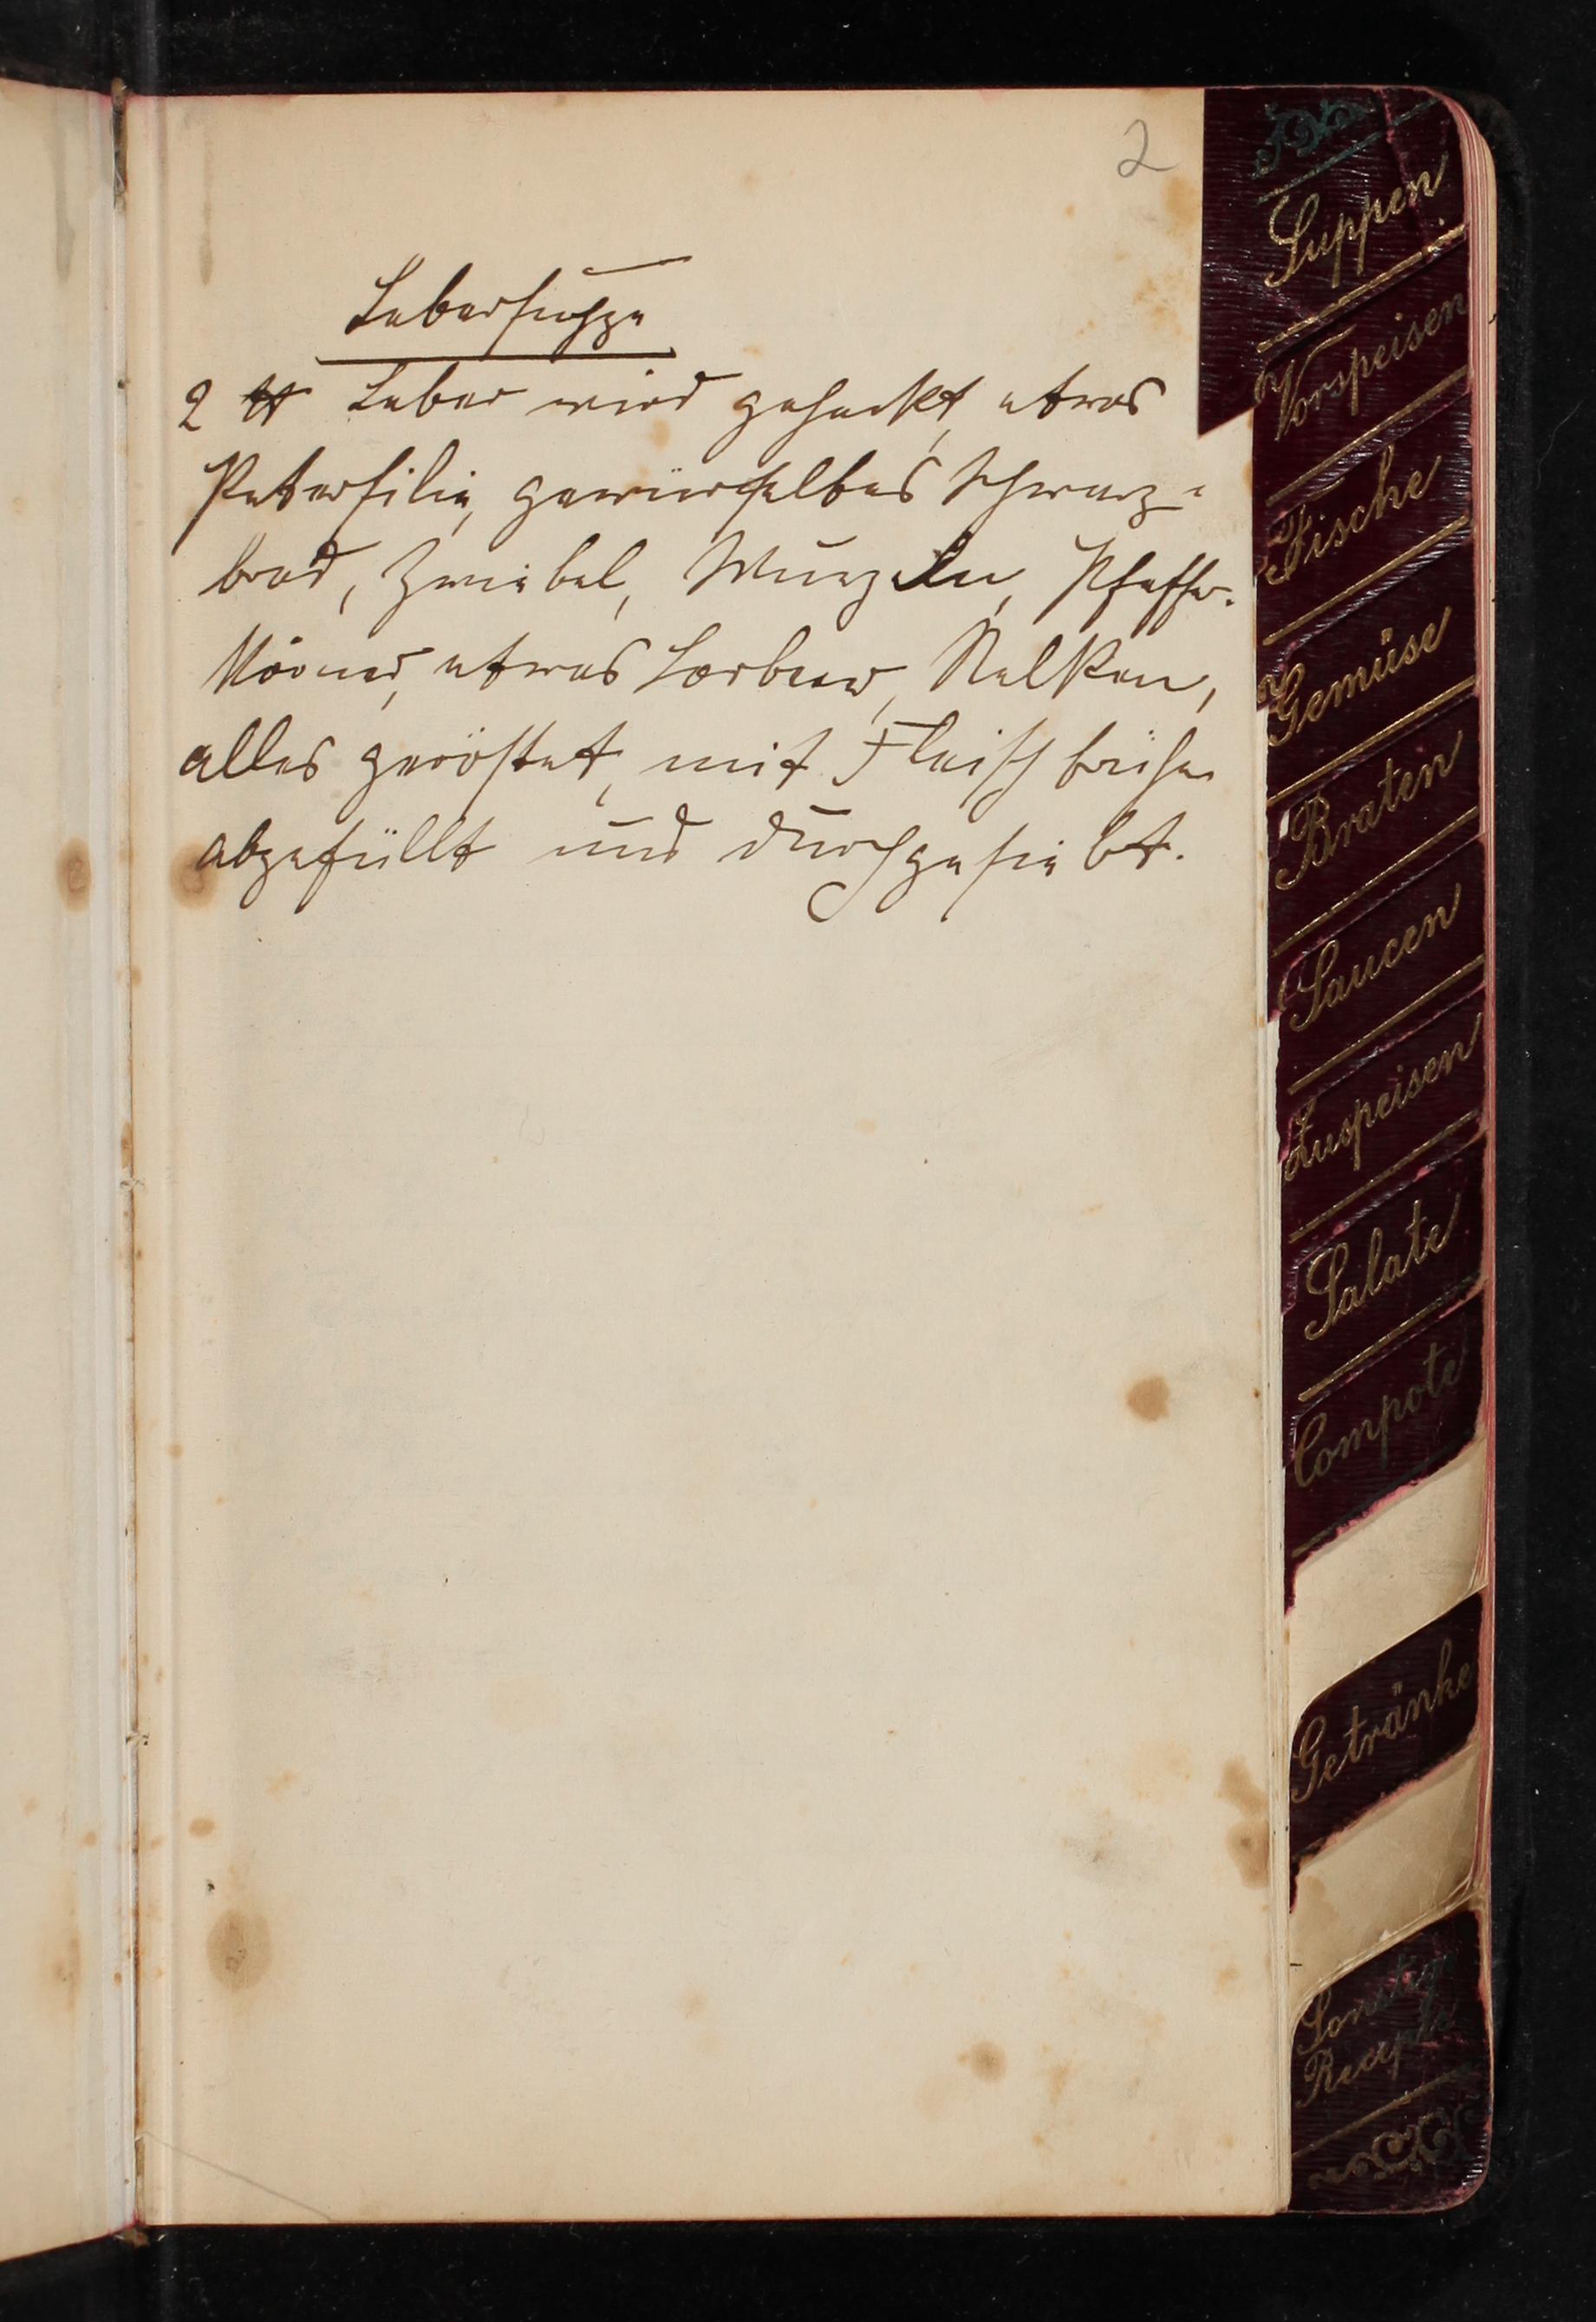 2
Lebersuppe
2 ℔ Leber wird gehackt, etwas
Petersilie, gewürfeltes Schwarz-
brod, Zwiebel, Wurzeln, Pfeffer-
körner, etwas Lorbeer, Nelken,
alles geröstet, mit Fleischbrühe
abgefüllt und durchgesiebt.
Suppen
Vorspeisen
Fische
Gemüse
Braten
Saucen
Zuspeisen
Salate
Compote
Getränke
Sonstige
Recepte